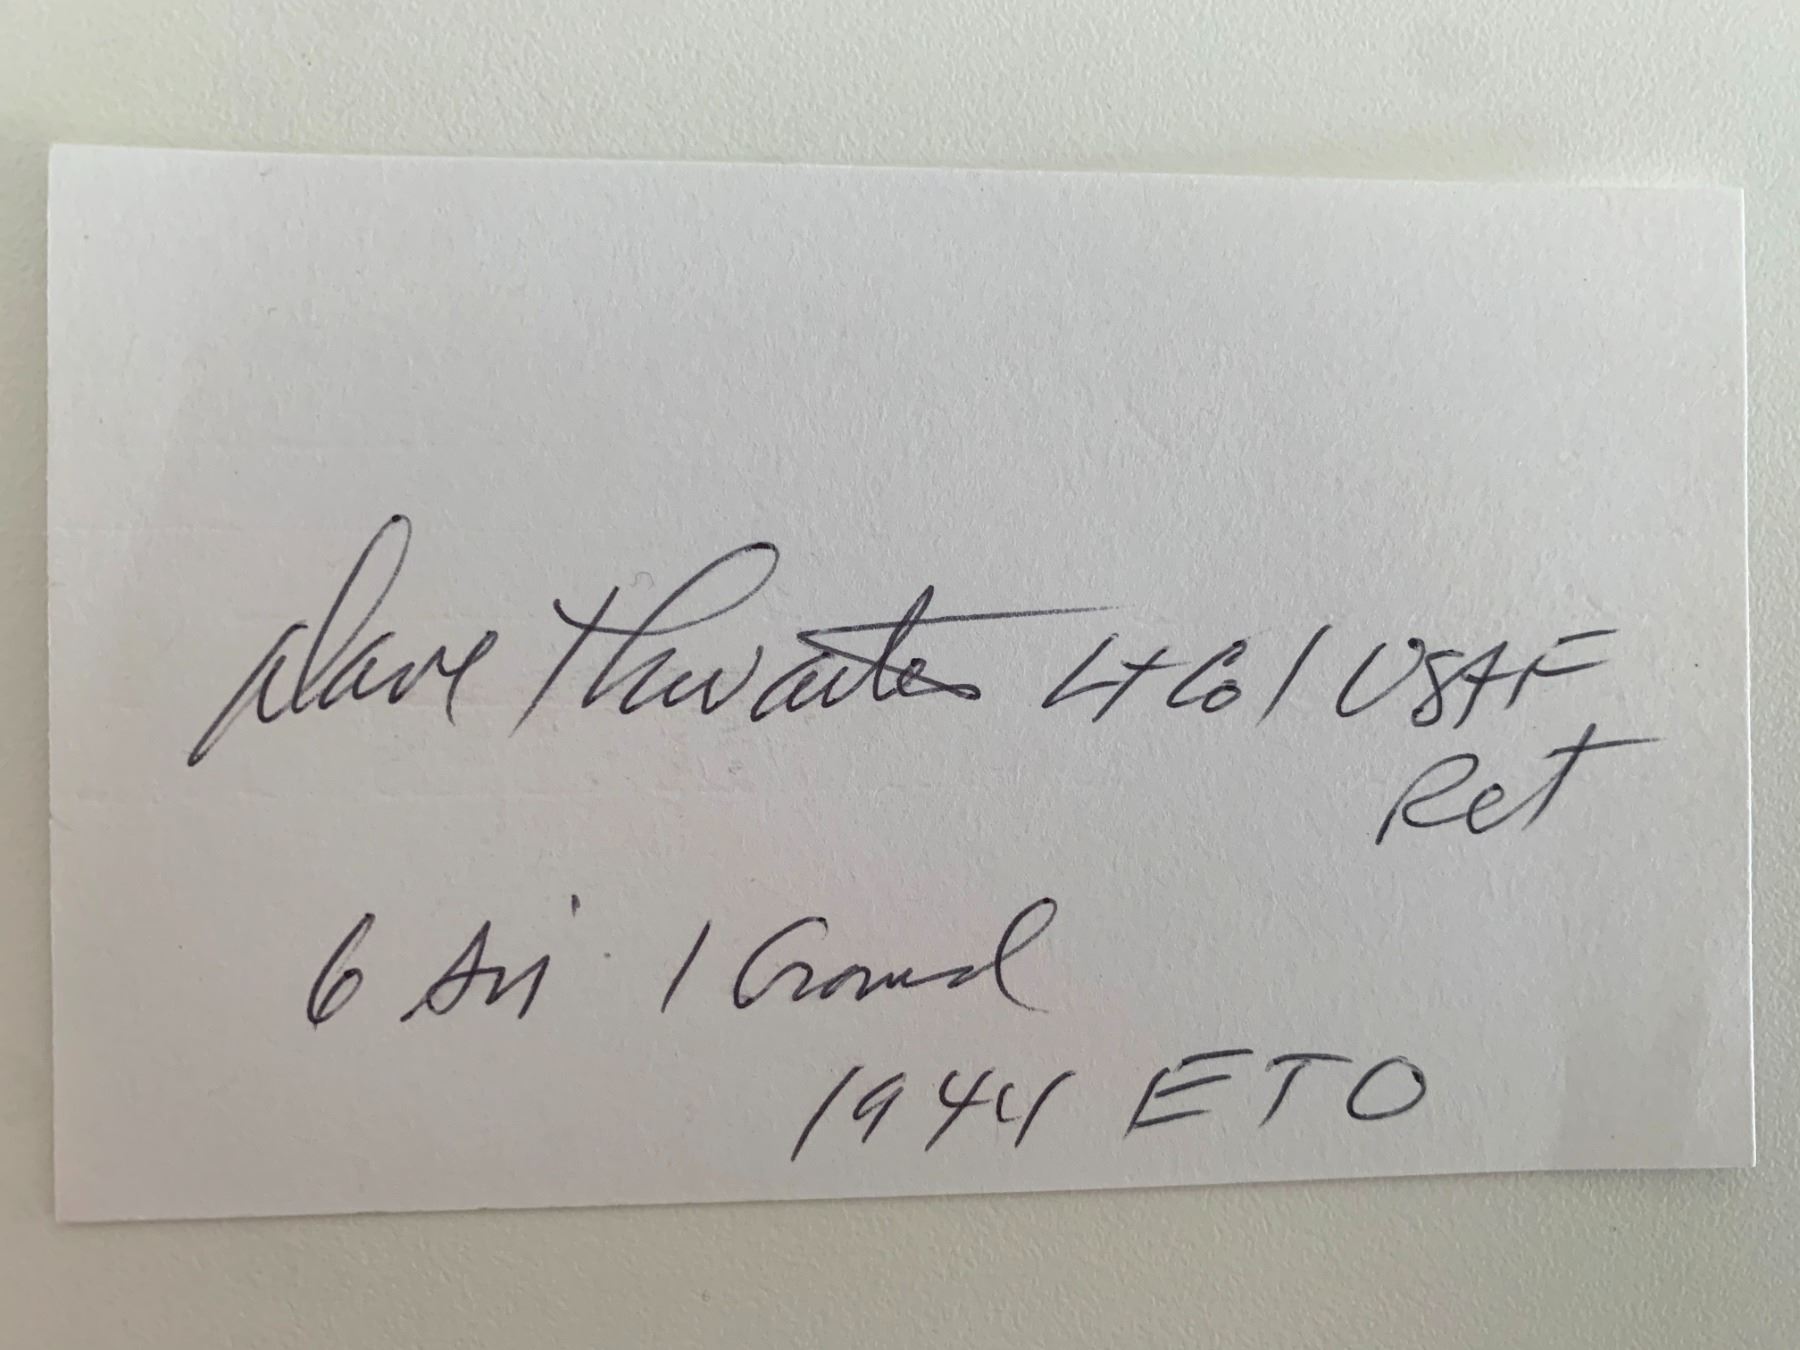 Dave Thwaites Lt Col USAF
Ret
6 Air 1 Ground
1944 ETO